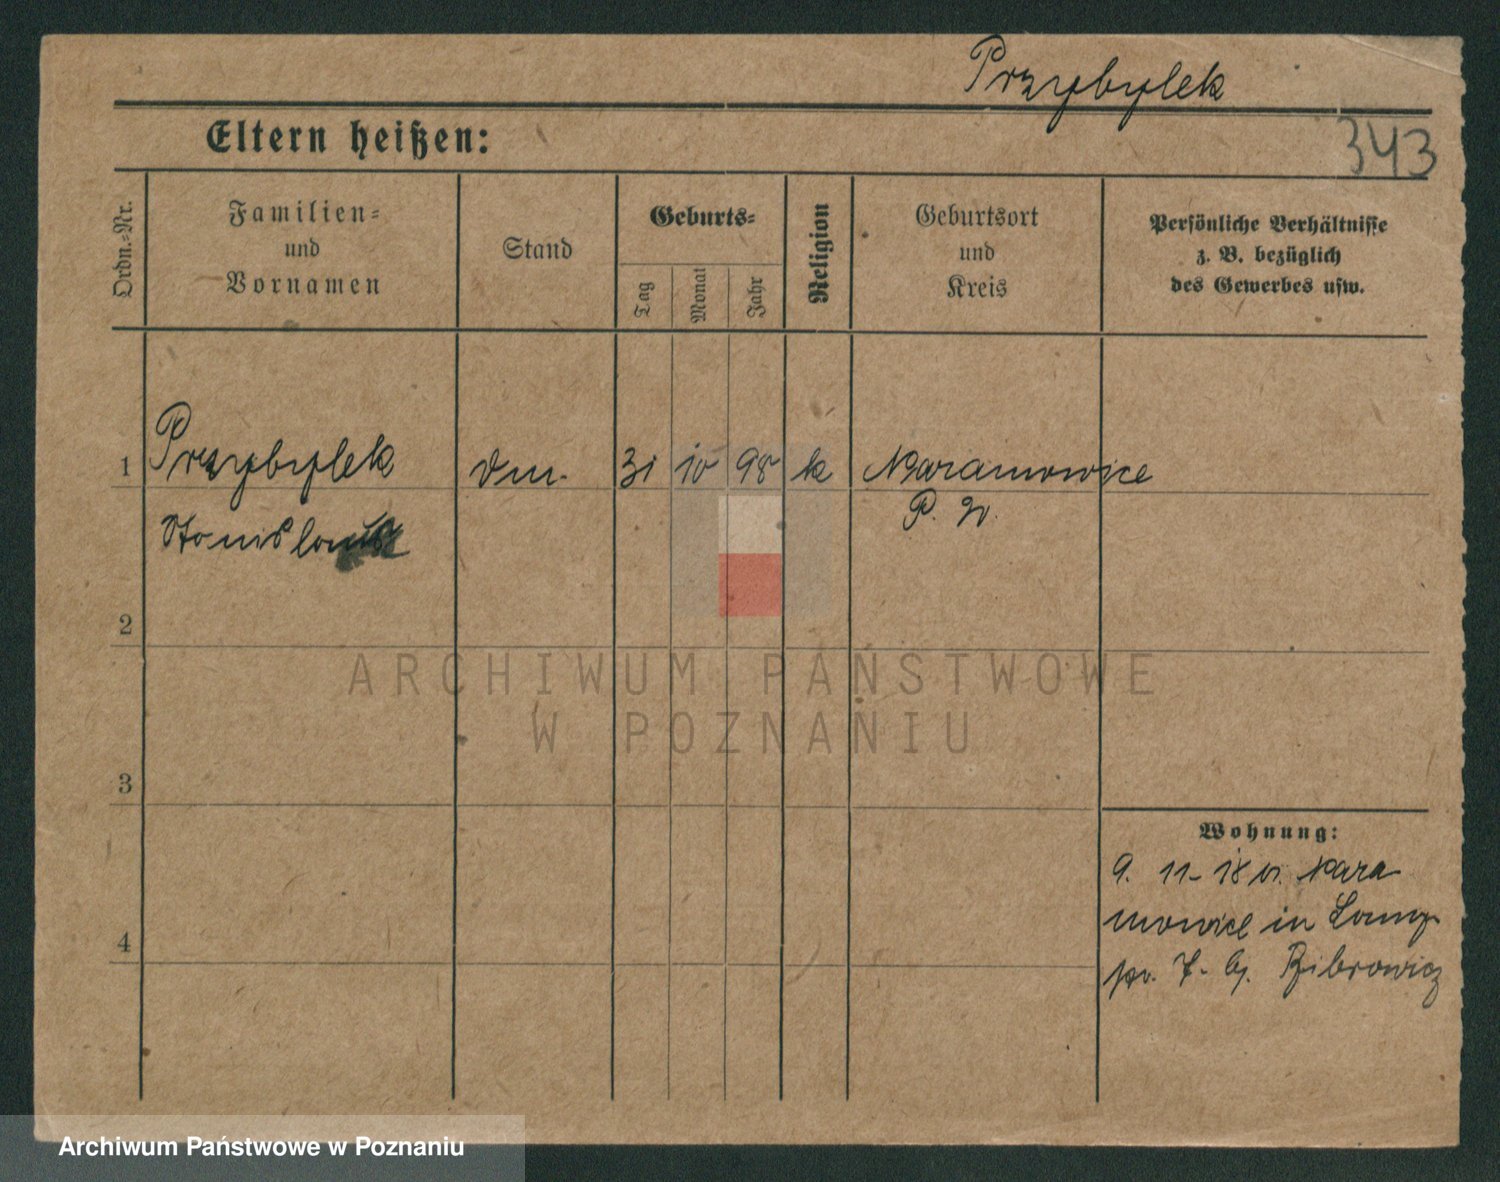 Przybylek
Eltern heißen:
343
Ordn.-Nr.
Familien-
und
Vornamen
Stand
Geburts-
Tag
Monat
Jahr
Religion
Geburtsort
und
Kreis
Persönliche Verhältnisse
z. B. bezüglich
des Gewerbes usw.
1
Przybylek
31 10 98 k Naramowice
Stanislaus
P.
2
ARCHIWUM PAŃSTWOWE
W POZNANIU
3
Wohnung:
9. 11- 18 Nara
mowice in
4
Archiwum Państwowe w Poznaniu